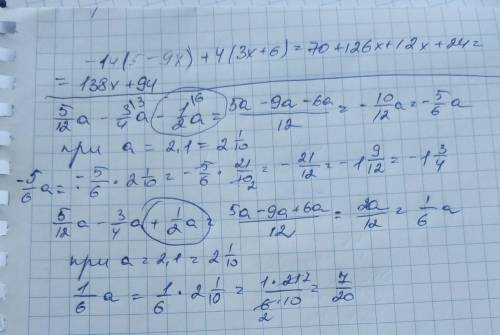 -14(5-9x)+4(3x+6)=70+126x+12x+24=
=138x+94
5/12 a - 3/4 \3 a - 1/2 \6 a = (5a-9a-6a)/12 = -10/12 a = -5/6 a
при a = 2,1 = 2 1/10
-5/6 a = -5/6 · 2 1/10 = -5/6 · 21/10 2 = -21/12 = -1 9/12 = -1 3/4
5/12 a - 3/4 a + 1/2 a = (5a-9a+6a)/12 = 2a/12 = 1/6 a
при a = 2,1 = 2 1/10
1/6 a = 1/6 · 2 1/10 = (1·21 7)/(6 2·10) = 7/20